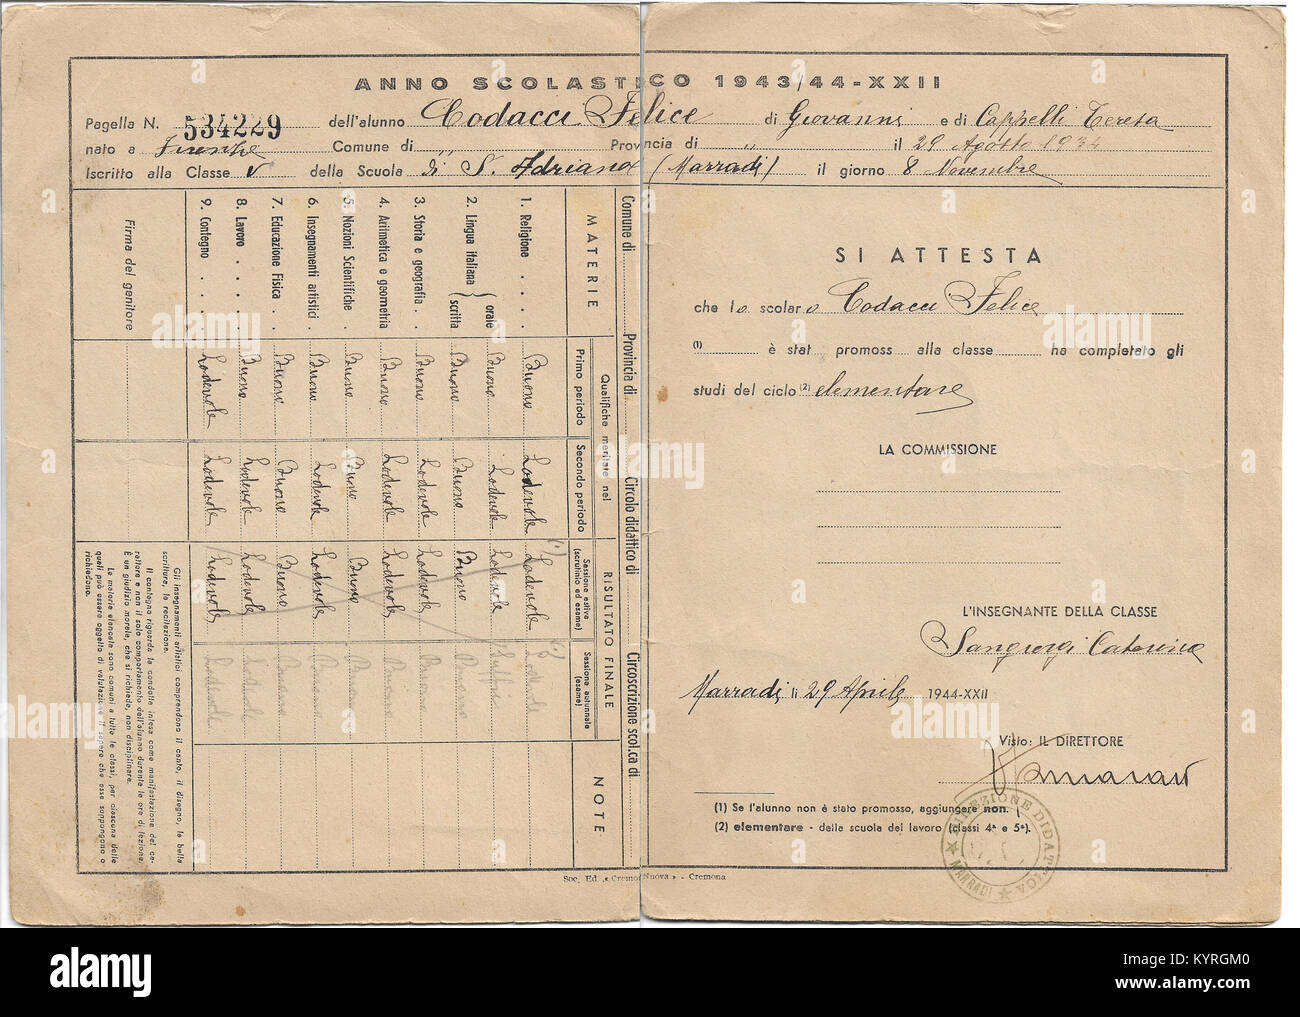 ANNO SCOLASTICO 1943/44-XXII
Pagella N. 534229 dell'alunno Codacci Felice di Giovanni e di Cappelli Teresa
nato a Firenze Comune di " Provincia di " il 29 Agosto 1934
Iscritto alla Classe V della Scuola di S. Adriano (Marradi) il giorno 8 Novembre
Comune di Provincia di Circolo didattico di Circoscrizione scol.ca di
MATERIE
Qualifiche meritate nel
RISULTATO FINALE
NOTE
Primo periodo
Secondo periodo
Sessione estiva (scrutinio ed esame)
Sessione autunnale (esame)
1. Religione Buono Lodevole (1) Lodevole
2. Lingua italiana { orale Buono Lodevole Lodevole
scritta Buono Buono Buono Buono
3. Storia e geografia Buono Lodevole Lodevole Buono
4. Aritmetica e geometria Buono Lodevole Lodevole Buono
5. Nozioni Scientifiche Buono Buono Buono Buono
6. Insegnamenti artistici Buono Lodevole Lodevole Buono
7. Educazione Fisica Buono Buono Buono Buono
8. Lavoro Buono Lodevole Lodevole Lodevole
9. Contegno Lodevole Lodevole Lodevole Lodevole
Firma del genitore
Gli insegnamenti artistici comprendono il canto, il disegno, la bella
scrittura, la recitazione.
Il contegno riguarda la condotta intesa come manifestazione del ca-
rattere e non il solo comportamento dell'alunno durante le ore di lezione.
È un giudizio morale, che si riduce, non disciplinare.
Le materie elencate sono comuni a tutte le classi, per ciascuna delle
quali può essere oggetto di valutazione il sapere che esse suppongono o
richiedono.
SI ATTESTA
che lo scolaro Codacci Felice
(1) è stat promoss alla classe ha completato gli
studi del ciclo (2) elementare
LA COMMISSIONE
L'INSEGNANTE DELLA CLASSE
Sangiorgi Caterina
Marradi li 29 Aprile 1944-XXII
Visto: IL DIRETTORE
(1) Se l'alunno non è stato promosso, aggiungere non.
(2) elementare - della scuola del lavoro (classi 4ª e 5ª).
DIREZIONE DIDATTICA
MARRADI
Soc. Ed. «Cremona Nuova» - Cremona
alamy
alamy
Image ID: KYRGM0
www.alamy.com